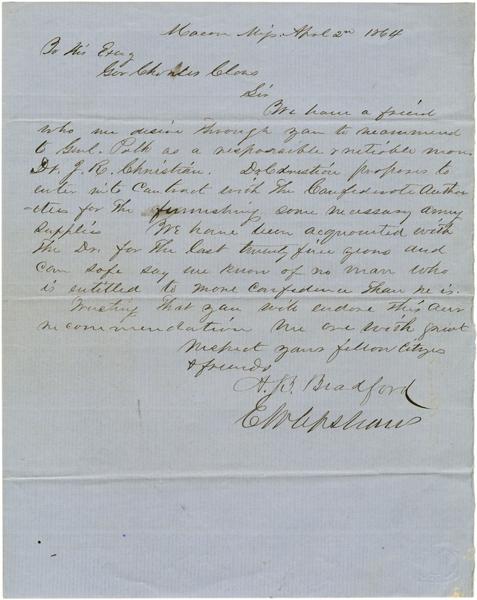 Macon Miss April 2nd 1864
To His Excy
Gov Charles Clark
Sir
We have a friend
who we desire through you to recommend
to Genl. Polk as a responsible & reliable man
Dr. J. R. Christian. Dr Christian proposes to
enter into Contract with the Confederate Author
-ities for the furnishing some necessary army
supplies We have been acquainted with
the Dr. for the last twenty five years and
can safe say we know of no man who
is entitled to more confidence than he is.
Trusting that you will endorse this our
recommendation We are with great
respect your fellow Citizens
& friends
A. Bradford
E W Upshaw